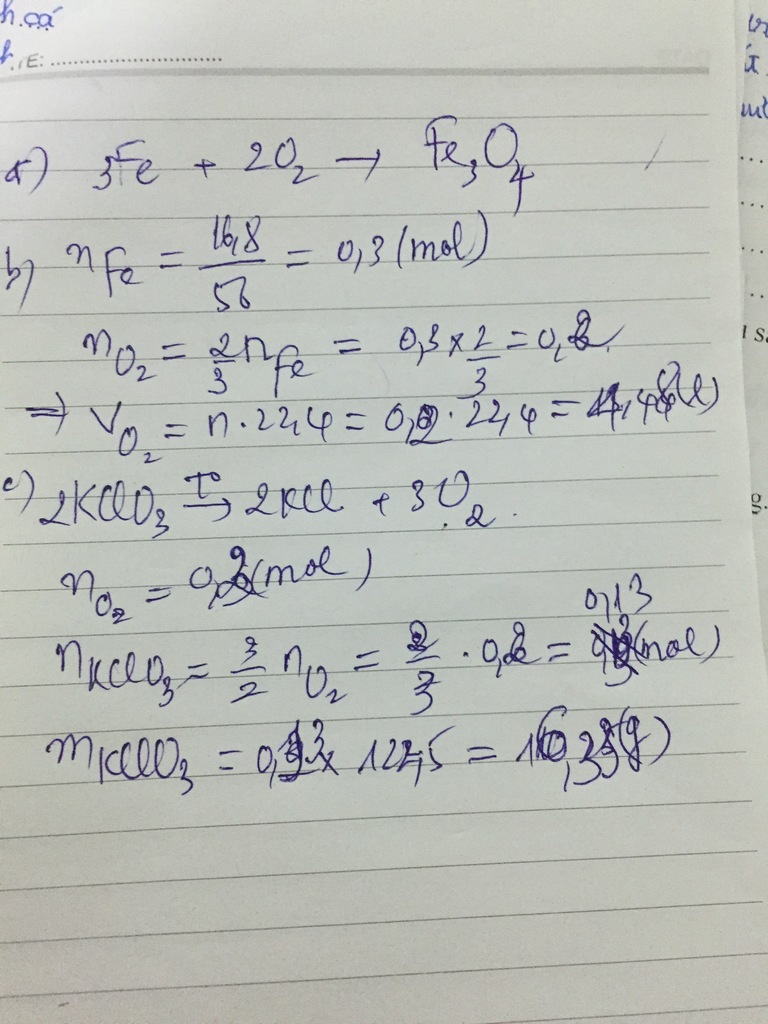 h.cá
TE: ..............................
a) 3Fe + 2O₂ → Fe₃O₄
b) n Fe = 16,8/56 = 0,3 (mol)
nO₂ = 2/3 n Fe = 0,3 × 2/3 = 0,2
⇒ VO₂ = n . 22,4 = 0,2 . 22,4 = 4,48 (l)
c) 2KClO₃ →(T°) 2KCl + 3O₂.
nO₂ = 0,2 (mol)
nKClO₃ = 3/2 nO₂ = 2/3 . 0,2 = 0,13 (mol)
mKClO₃ = 0,13 × 122,5 = 16,33 (g)
g.